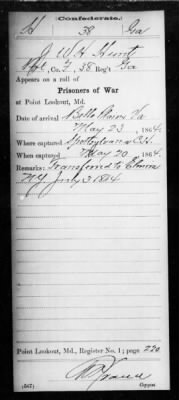 Confederate.
H 38 Ga
J. W. H. Hunt
Co. , 38 Reg't Ga
Appears on a roll of
Prisoners of War
at Point Lookout, Md.
Date of arrival Belle Plains Va
May 23, 1864.
Where captured Spottsylvania C.H.
When captured May 20, 1864.
Remarks: Transferred to Elmira
N.Y. July 3 1864
Point Lookout, Md., Register No. 1; page 220
(567) Copyist.